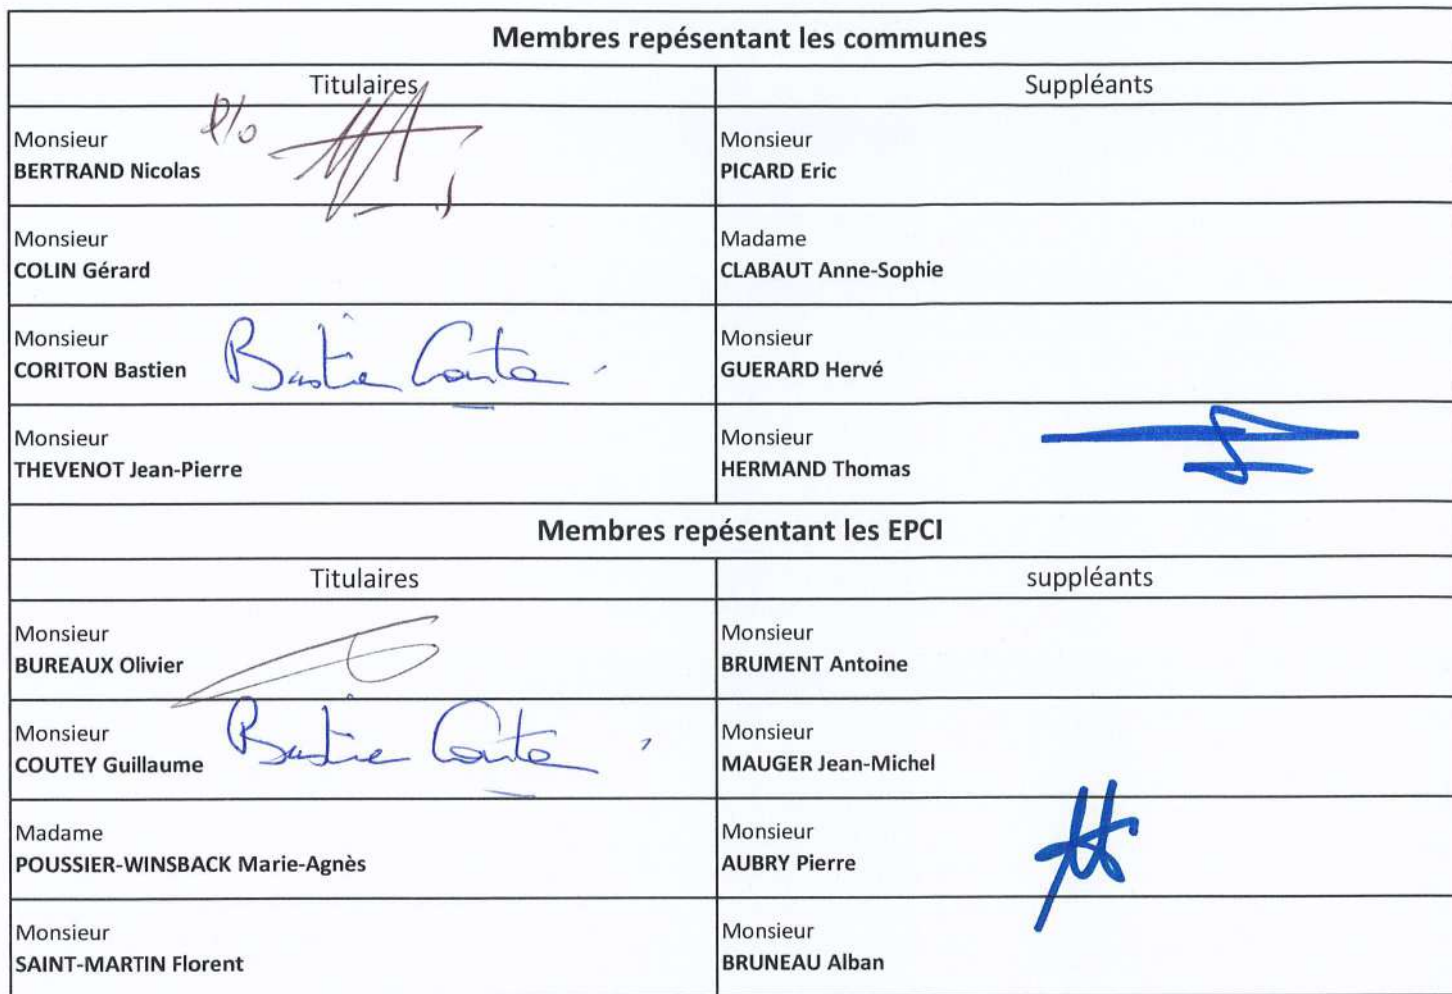 Membres repésentant les communes
Titulaires
Suppléants
Monsieur
BERTRAND Nicolas
P/o
Monsieur
PICARD Eric
Monsieur
COLIN Gérard
Madame
CLABAUT Anne-Sophie
Monsieur
CORITON Bastien
Monsieur
GUERARD Hervé
Monsieur
THEVENOT Jean-Pierre
Monsieur
HERMAND Thomas
Membres repésentant les EPCI
Titulaires
suppléants
Monsieur
BUREAUX Olivier
Monsieur
BRUMENT Antoine
Monsieur
COUTEY Guillaume
Monsieur
MAUGER Jean-Michel
Madame
POUSSIER-WINSBACK Marie-Agnès
Monsieur
AUBRY Pierre
Monsieur
SAINT-MARTIN Florent
Monsieur
BRUNEAU Alban